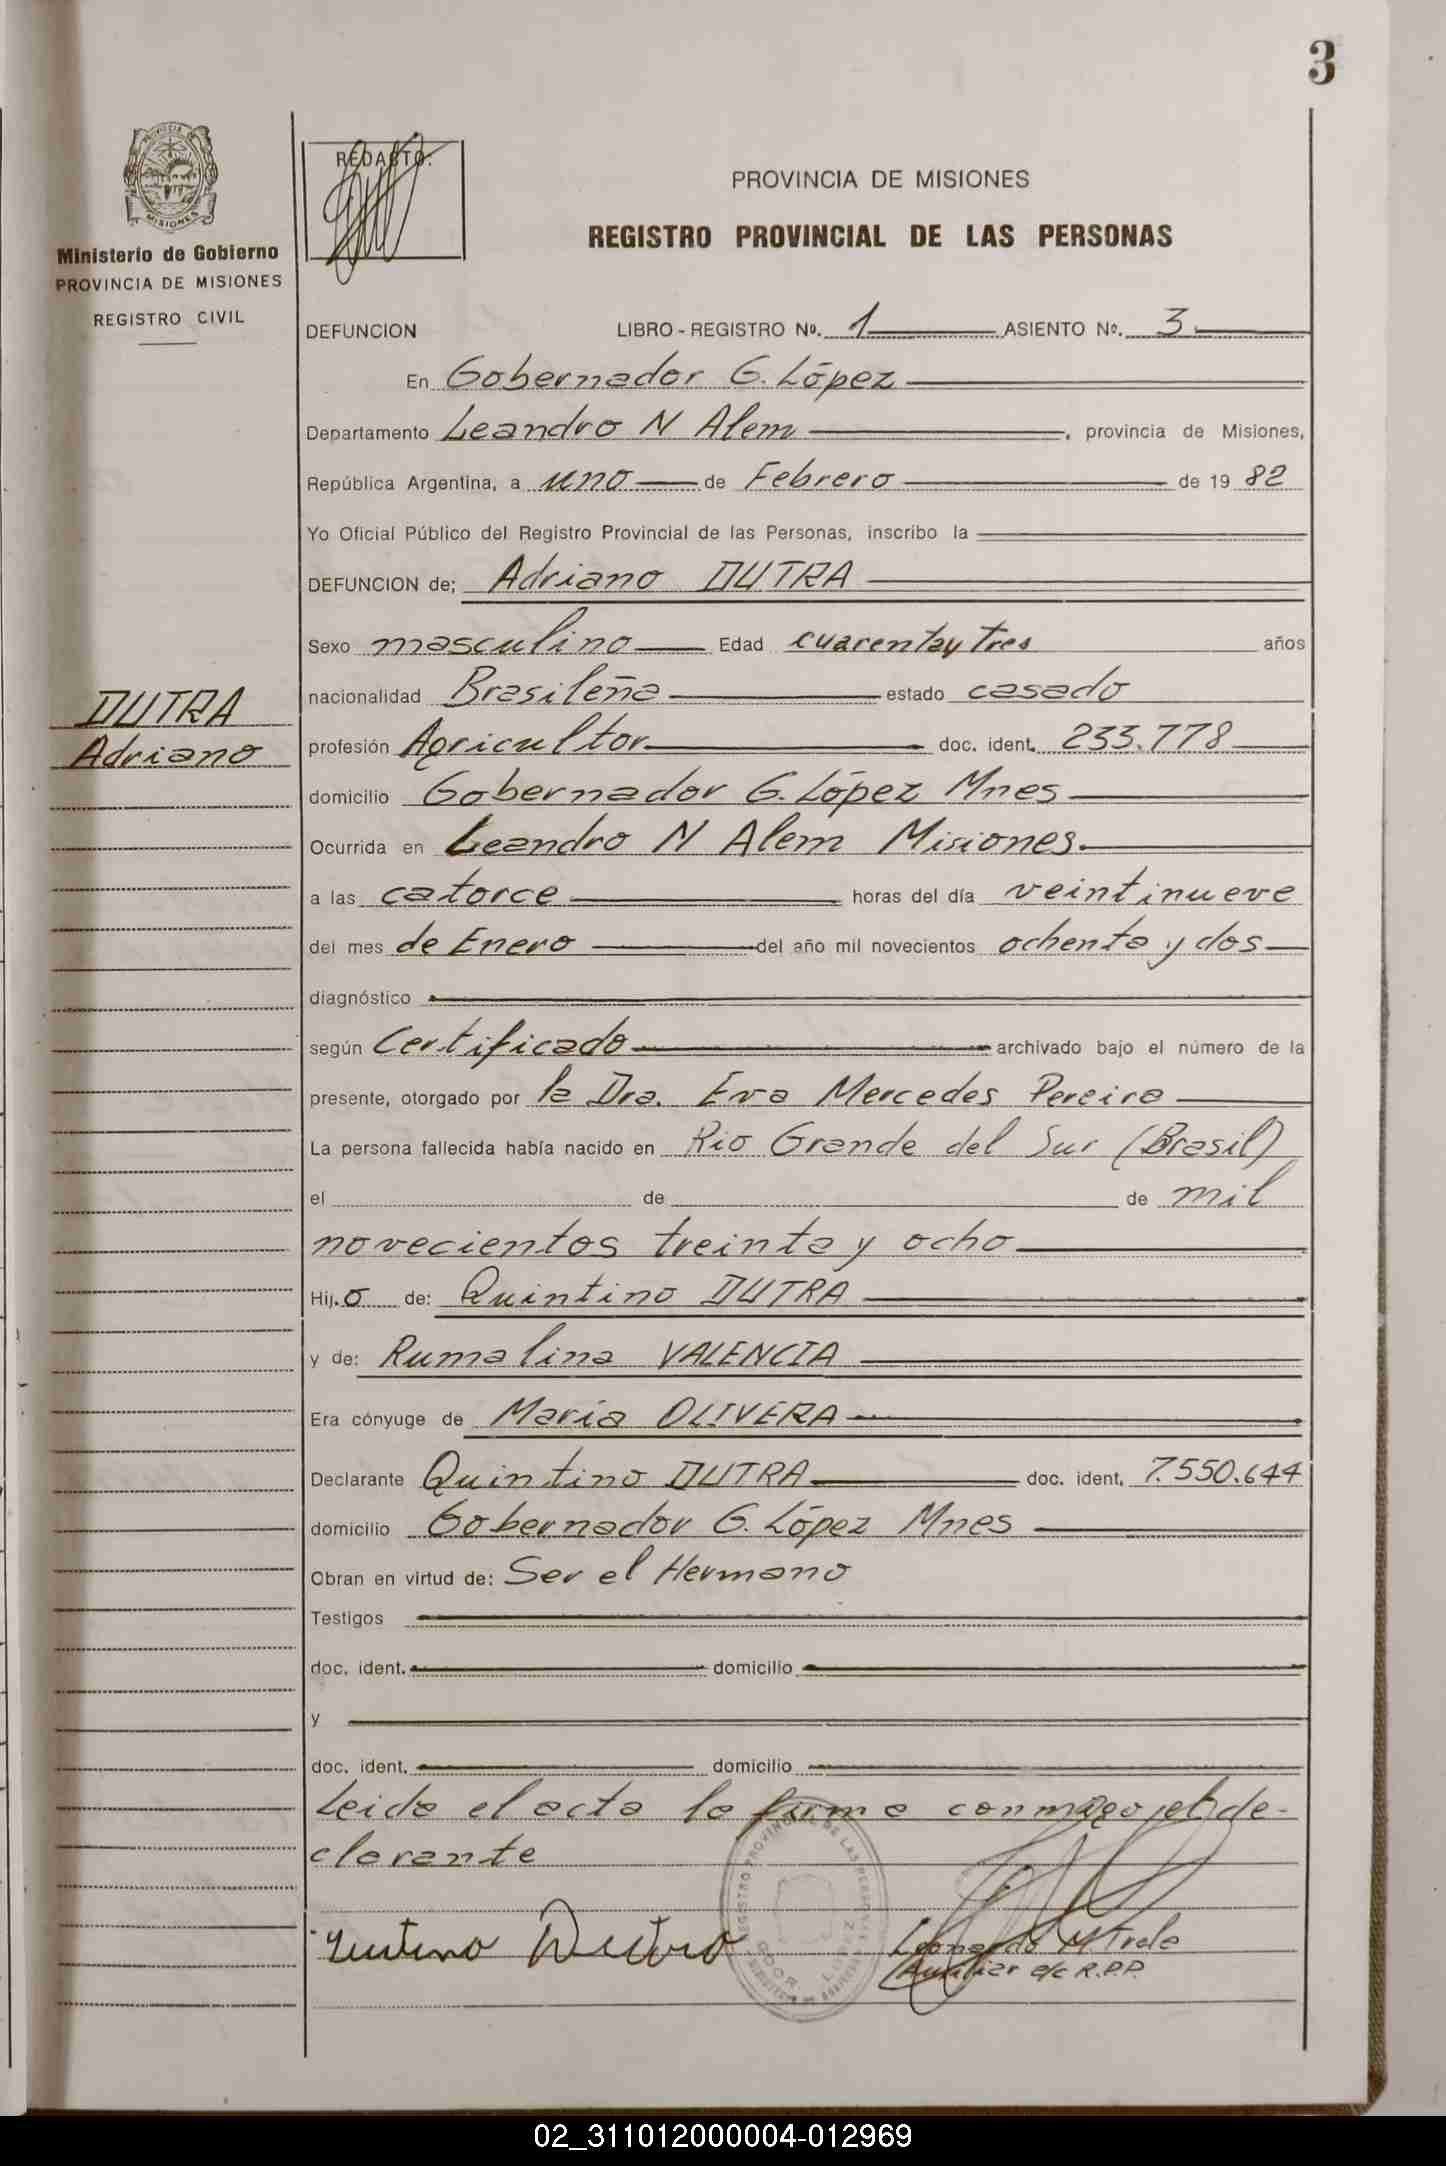 3
PROVINCIA DE
MISIONES
Ministerio de Gobierno
PROVINCIA DE MISIONES
REGISTRO CIVIL
DUTRA
Adriano
REDACTO:
PROVINCIA DE MISIONES
REGISTRO PROVINCIAL DE LAS PERSONAS
DEFUNCION LIBRO - REGISTRO Nº. 1 ASIENTO Nº. 3
En Gobernador G. López
Departamento Leandro N Alem, provincia de Misiones,
República Argentina, a uno de Febrero de 19 82
Yo Oficial Público del Registro Provincial de las Personas, inscribo la
DEFUNCION de; Adriano DUTRA
Sexo masculino Edad cuarentay tres años
nacionalidad Brasileña estado casado
profesión Agricultor doc. ident. 233.778
domicilio Gobernador G. López Mnes
Ocurrida en Leandro N Alem Misiones.
a las catorce horas del día veintinueve
del mes de Enero del año mil novecientos ochenta y dos
diagnóstico
según Certificado archivado bajo el número de la
presente, otorgado por la Dra. Eva Mercedes Pereira
La persona fallecida había nacido en Rio Grande del Sur (Brasil)
el de de mil
novecientos treinta y ocho
Hij.o de: Quintino DUTRA
y de: Rumalina VALENCIA
Era cónyuge de María OLIVERA
Declarante Quintino DUTRA doc. ident. 7.550.644
domicilio Gobernador G. López Mnes
Obran en virtud de: Ser el Hermano
Testigos
doc. ident. domicilio
y
doc. ident. domicilio
Leida el acta la firma conmigo el de-
clarante
Dutra
REGISTRO PROVINCIAL DE LAS PERSONAS
GDOR. LOPEZ
Leonardo
Auxiliar e/c R.P.P.
02_311012000004-012969